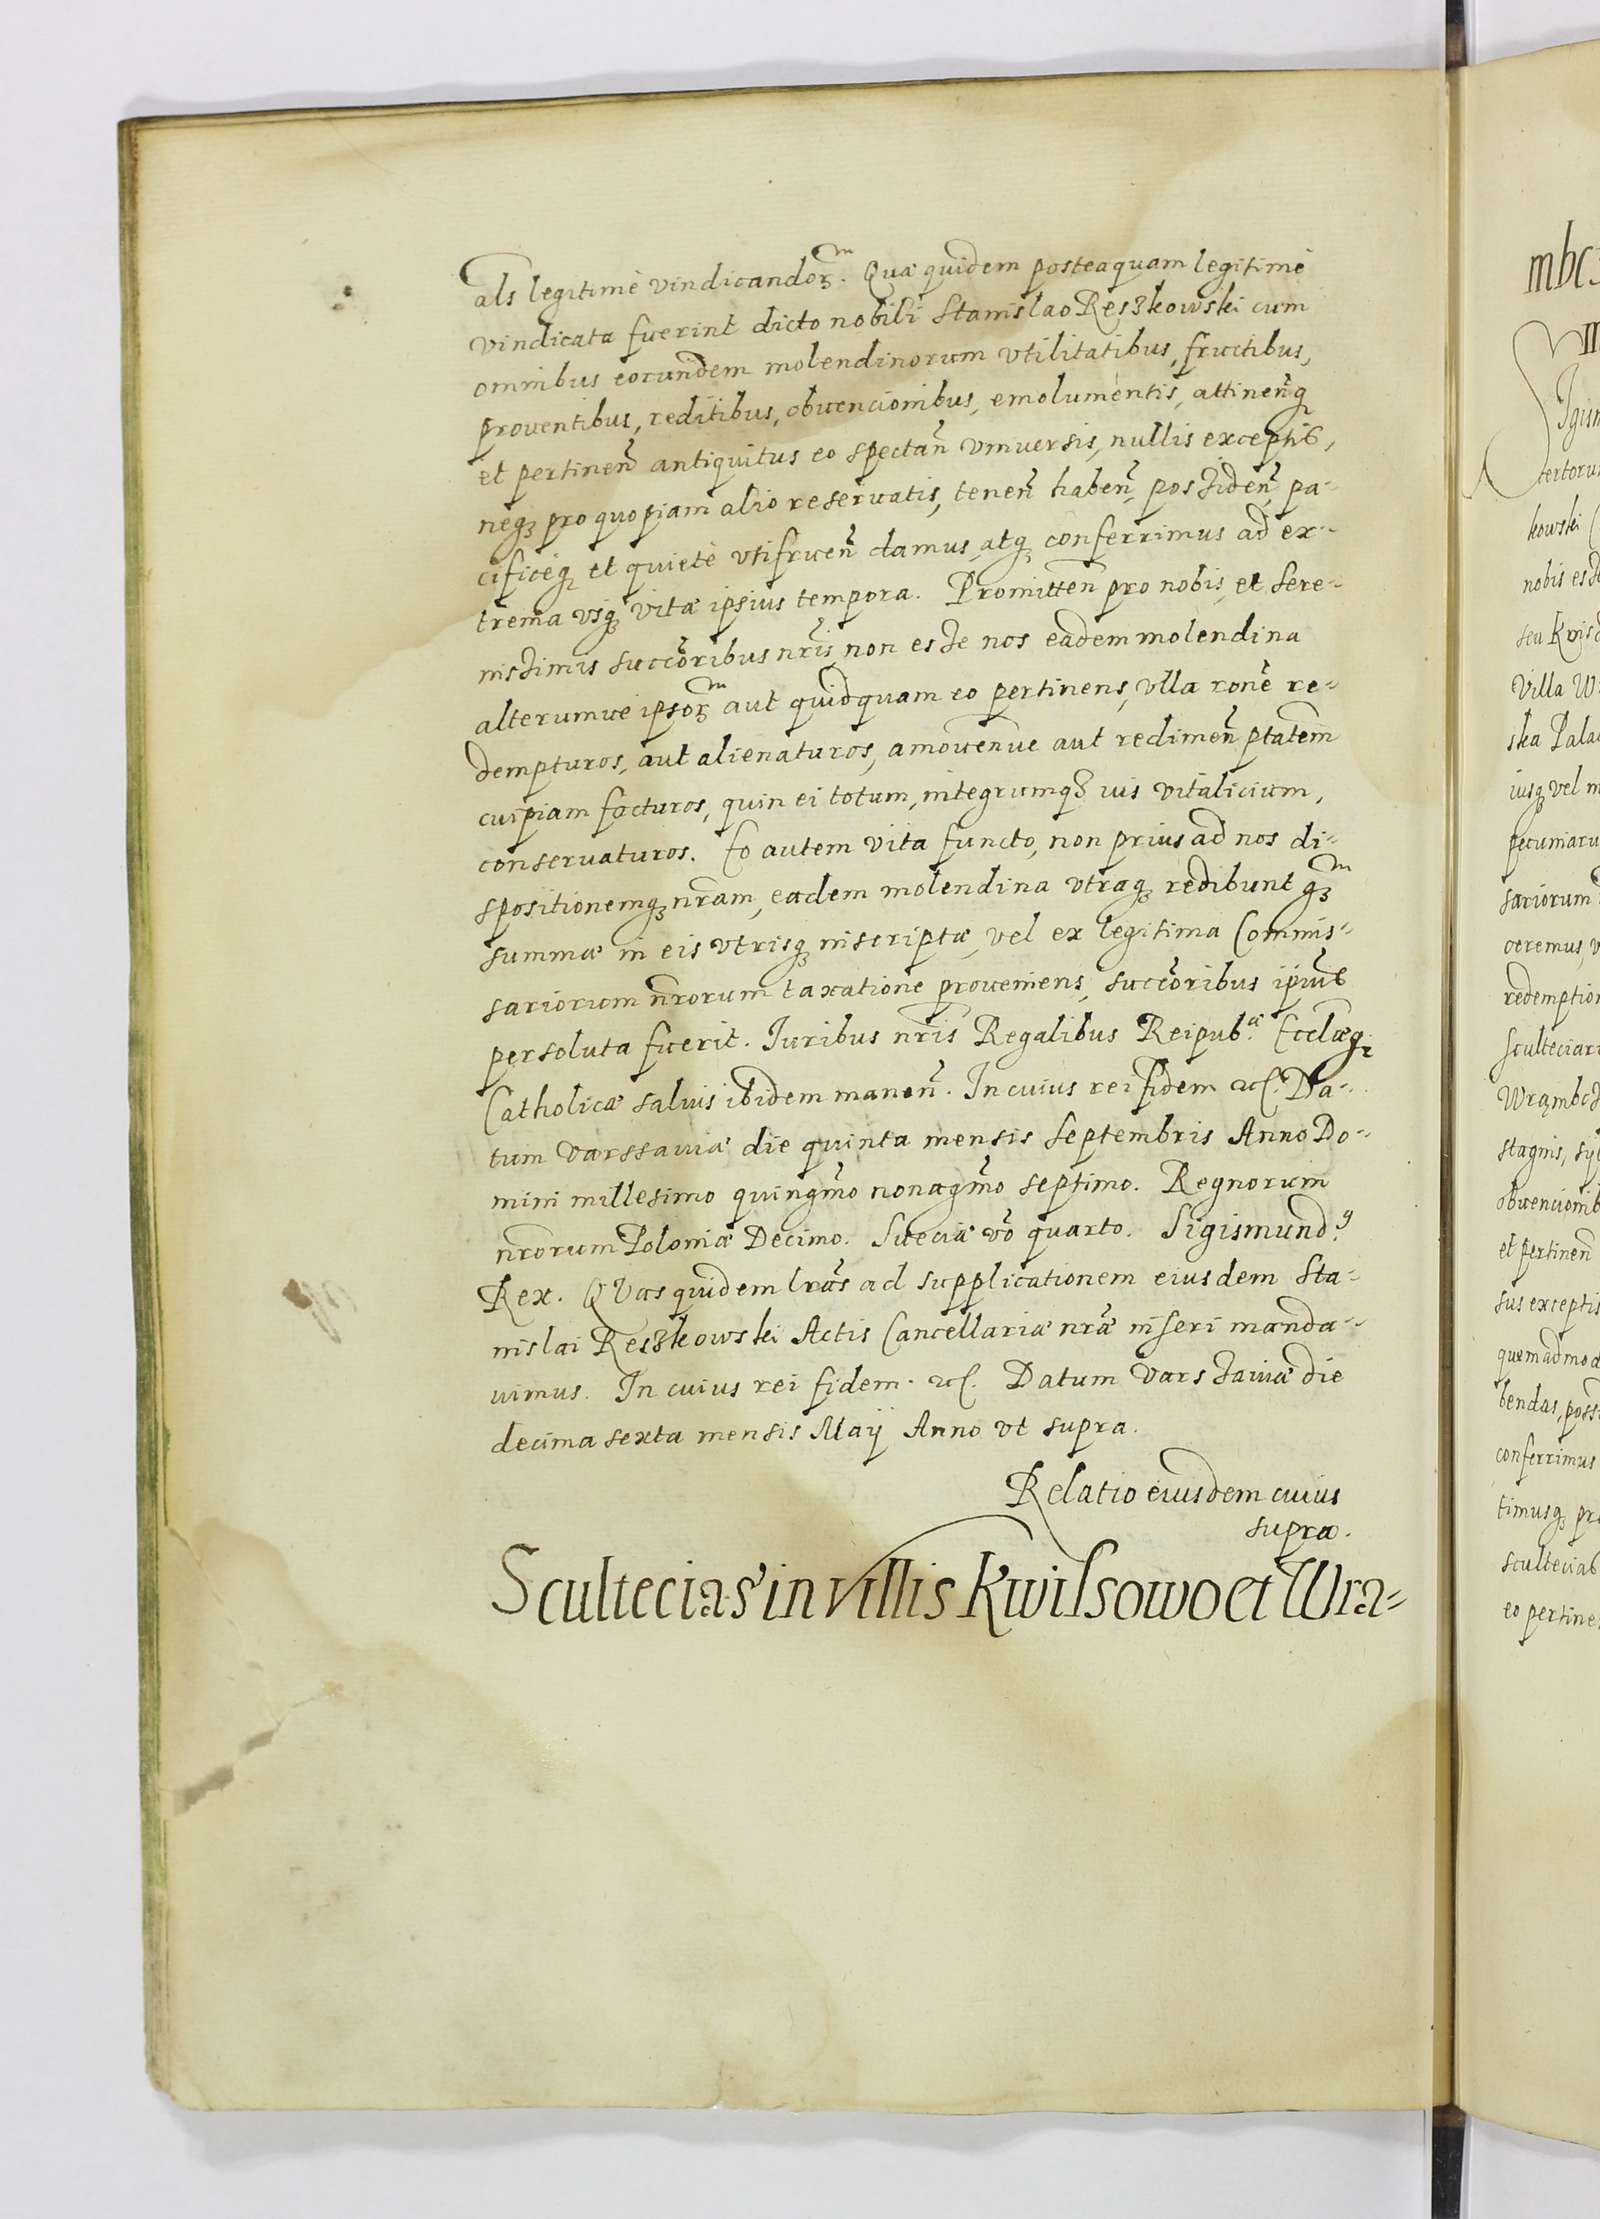 als legitimè vindicandorꝫ̃. Quæ quidem posteaquam legitimè
vindicata fuerint dicto nobili Stanislao Reszkowski cum
omnibus eorundem molendinorum vtilitatibus, fructibus,
prouentibus, reditibus, obuencionibus, emolumentis, attinenq̃
et pertineñ antiquitus eo spectañ vniuersis, nullis exceptis,
neqꝫ pro quopiam alio reseruatis, teneñ habeñ possideñ pa-
cificeqꝫ et quietè vtifrueñ damus atqꝫ conferrimus ad ex-
trema vsqꝫ vitæ ipsius tempora. Promitteñ pro nobis, et Sere-
nissimis succõribus nr̃is, non esse nos eadem molendina
alterumue ipsorꝫ̃ aut quidquam eo pertinens, vlla rõne re-
dempturos, aut alienaturos, amouenue aut redimeñ ptãtem
cuipiam facturos, quin ei totum, integrumqꝫ ius vitalicium,
conseruaturos. Eo autem vita functo, non prius ad nos di-
spositionemqꝫ nr̃am, eadem molendina vtraqꝫ redibunt qꝫ̃
summæ in eis vtrisqꝫ inscriptæ, vel ex legitima Commis-
sariorum nr̃orum taxatione proueniens, succõribus ip̃ius
persoluta fuerit. Iuribus nr̃is Regalibus Reipub.æ Eccl̃æqꝫ
Catholicæ saluis ibidem maneñ. In cuius rei fidem etc. Da-
tum Varssauiæ die quinta mensis Septembris Anno Do-
mini millesimo quingm̃o nonagm̃o septimo. Regnorum
nr̃orum Poloniæ Decimo. Sueciæ võ quarto. Sigismund.ꝰ
Rex. QVas quidem lrãs ad supplicationem eiusdem Sta-
nislai Reszkowski Actis Cancellariæ nr̃æ inseri manda-
uimus. In cuius rei fidem. etc. Datum Varssauiæ die
decima sexta mensis Maij Anno vt supra.
Relatio eiusdem cuius
supra.
Scultecias in villis Kwilsowo et Wra-
mbcz
kowski
nobis esse
Villa
ska Pala
iusqꝫ vel
pecuniaru
sariorum
oeremus,
redemption
Scultecian
stagnis,
obuencionib
et pertineñ
sus exceptis
quemadmod
bendas, poss
conferrimus
timusqꝫ pro
scultecias
eo pertine